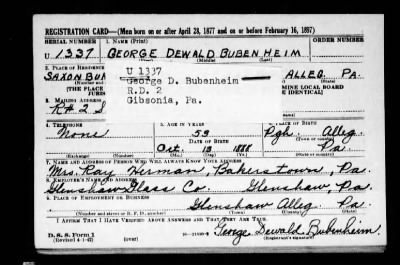 REGISTRATION CARD—(Men born on or after April 28, 1877 and on or before February 16, 1897)
SERIAL NUMBER 1. NAME (Print) ORDER NUMBER
U 1337 GEORGE DEWALD BUBENHEIM
(First) (Middle) (Last)
2. PLACE OF RESIDENCE
SAXON BUR U 1337 ALLEG. PA.
George D. Bubenheim
(THE PLACE R.D. 2 MINE LOCAL BOARD
JURIS Gibsonia, Pa. E CERTIFICATE.)
3. MAILING ADDRESS
R # 2
4. TELEPHONE 5. AGE IN YEARS 6. PLACE OF BIRTH
None 53 Pgh. Alleg.
DATE OF BIRTH (Town or county)
Oct. 19 1888 Pa.
(Exchange) (Number) (Mo.) (Day) (Yr.) (State or country)
7. NAME AND ADDRESS OF PERSON WHO WILL ALWAYS KNOW YOUR ADDRESS
Mrs. Ray Herman, Bakerstown, Pa.
8. EMPLOYER'S NAME AND ADDRESS
Glenshaw Glass Co. Glenshaw, Pa.
9. PLACE OF EMPLOYMENT OR BUSINESS
Glenshaw Alleg. Pa.
(Number and street or R. F. D. number) (Town) (County) (State)
I AFFIRM THAT I HAVE VERIFIED ABOVE ANSWERS AND THAT THEY ARE TRUE.
D. S. S. Form 1
(Revised 4-1-42) (over) George Dewald Bubenheim
(Registrant's signature)